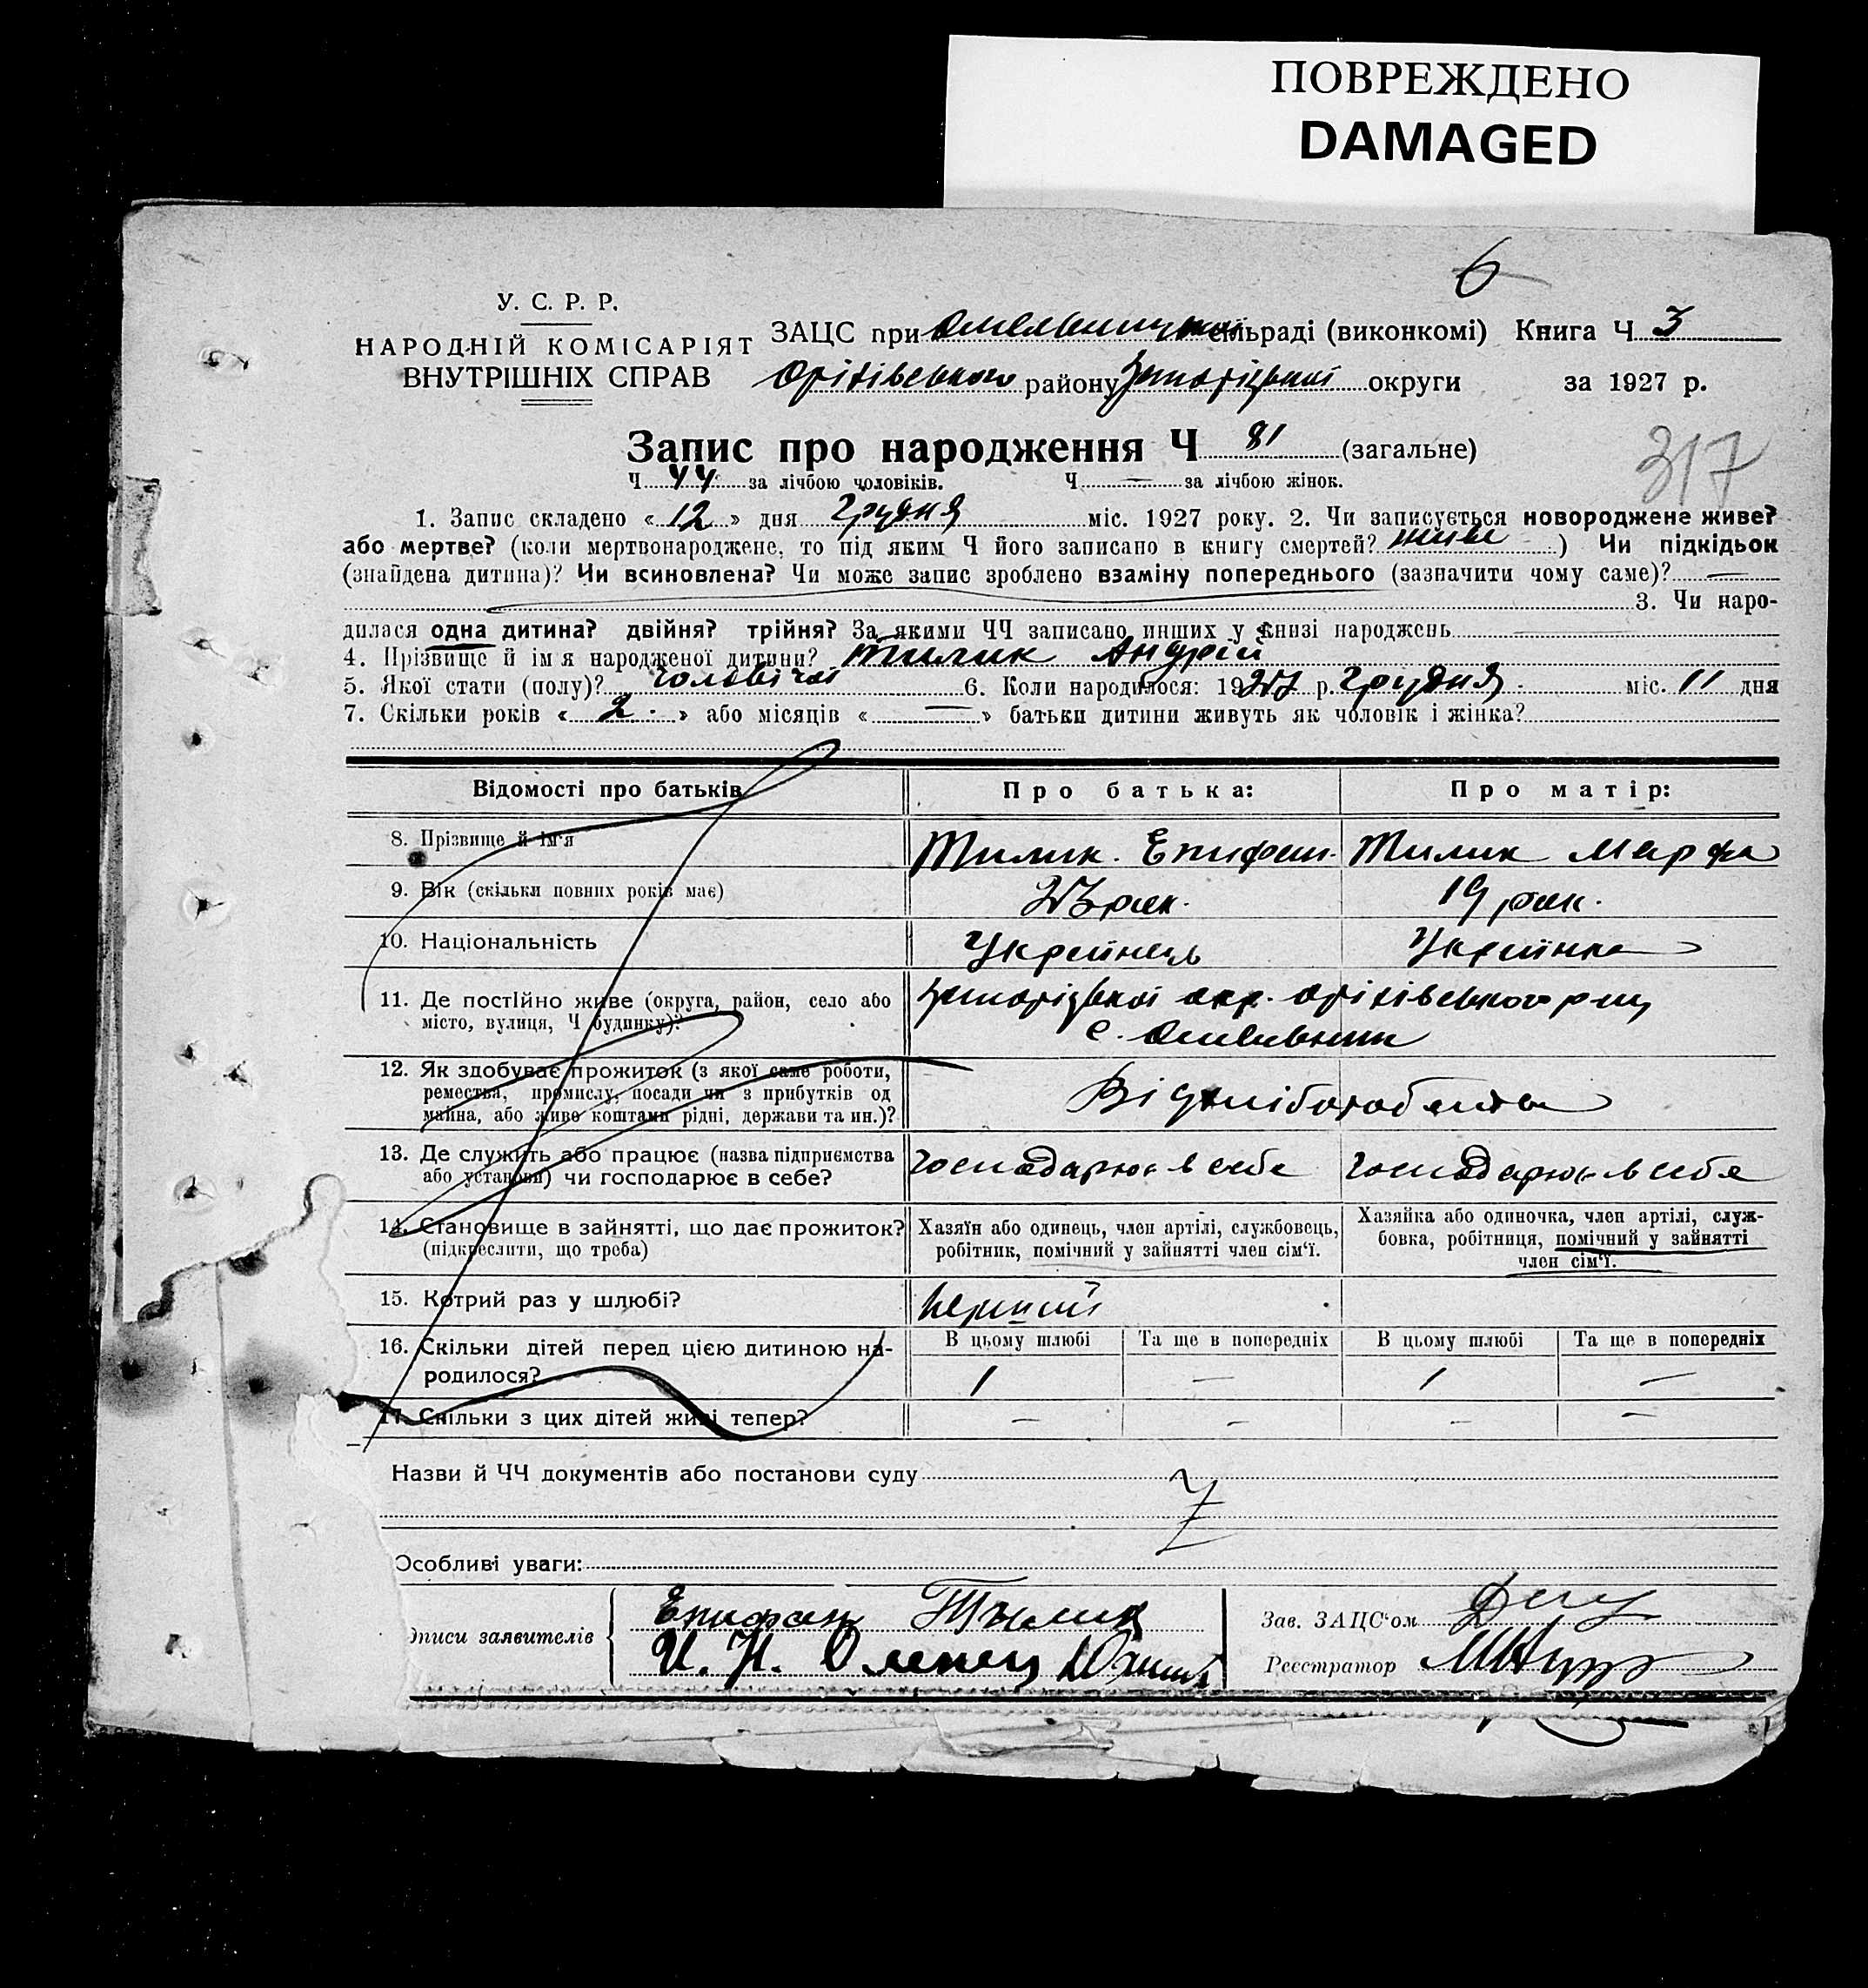 ПОВРЕЖДЕНО
DAMAGED
6
У. С. Р. Р.
НАРОДНІЙ КОМІСАРІЯТ
ВНУТРІШНІХ СПРАВ
ЗАЦС при сільраді (виконкомі) Книга Ч. 3
Оріхівського району Запоріцької округи за 1927 р.
Запис про народження Ч 81 (загальне)
317
Ч. 44 за лічбою чоловіків. Ч. — за лічбою жінок.
1. Запис складено «12» дня Грудня міс. 1927 року. 2. Чи записується новороджене живе?
або мертве? (коли мертвонароджене, то під яким Ч його записано в книгу смертей? живе ) Чи підкідьок
(знайдена дитина)? Чи всиновлена? Чи може запис зроблено взаміну попереднього (зазначити чому саме)? —
3. Чи наро-
дилася одна дитина? двійня? трійня? За якими ЧЧ записано инших у книзі народжень —
4. Прізвище й ім'я народженої дитини? Тилик Андрій
5. Якої стати (полу)? чоловічої 6. Коли народилося: 1927 р. Грудня міс. 11 дня
7. Скільки років «2» або місяців «—» батьки дитини живуть як чоловік і жінка?
Відомості про батьків Про батька: Про матір:
8. Прізвище й ім'я Тилик Епифан. Тилик Марфа
9. Вік (скільки повних років має) 23 рок. 19 рок.
10. Національність Українець Українка
11. Де постійно живе (округа, район, село або Запоріцької окр. Оріхівського рну
місто, вулиця, Ч будинку)? с. Омельник
12. Як здобуває прожиток (з якої саме роботи,
ремества, промислу, посади чи з прибутків од Від хліборобства
майна, або живе коштами рідні, держави та ин.)?
13. Де служить або працює (назва підприємства Господарює в себе Господарює в себе
або установи) чи господарює в себе?
14. Становище в зайнятті, що дає прожиток? Хазяїн або одинець, член артілі, службовець, Хазяйка або одиночка, член артілі, служ-
(підкреслити, що треба) робітник, помічний у зайнятті член сім'ї. бовка, робітниця, помічний у зайнятті
член сім'ї.
15. Котрий раз у шлюбі? Перший
16. Скільки дітей перед цією дитиною на- В цьому шлюбі Та ще в попередніх В цьому шлюбі Та ще в попередніх
родилося? 1 — 1 —
17. Скільки з цих дітей живі тепер? — — — —
Назви й ЧЧ документів або постанови суду
Особливі уваги:
описи заявителів
Епифан Тилик
И. Н. Оленец
Зав. ЗАЦС'ом
Реєстратор